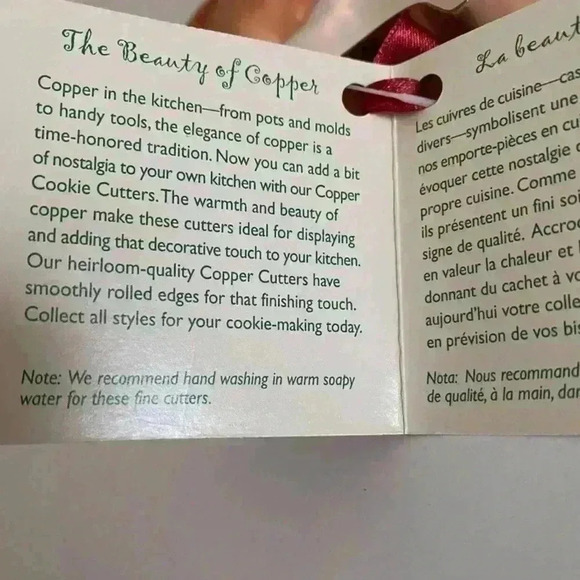 The Beauty of Copper
Copper in the kitchen—from pots and molds
to handy tools, the elegance of copper is a
time-honored tradition. Now you can add a bit
of nostalgia to your own kitchen with our Copper
Cookie Cutters. The warmth and beauty of
copper make these cutters ideal for displaying
and adding that decorative touch to your kitchen.
Our heirloom-quality Copper Cutters have
smoothly rolled edges for that finishing touch.
Collect all styles for your cookie-making today.
Note: We recommend hand washing in warm soapy
water for these fine cutters.
La beaut
Les cuivres de cuisine—cas
divers—symbolisent une
nos emporte-pièces en cu
évoquer cette nostalgie
propre cuisine. Comme
ils présentent un fini soi
signe de qualité. Accroc
en valeur la chaleur et
donnant du cachet à vo
aujourd'hui votre colle
en prévision de vos bis
Nota: Nous recommand
de qualité, à la main, dan